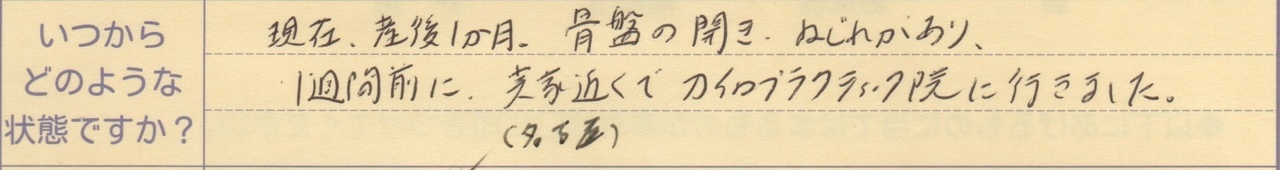 いつから
どのような
状態ですか？
現在、産後1か月。骨盤の開き、ねじれがあり、
1週間前に、実家近くでカイロプラクティック院に行きました。
(名古屋)